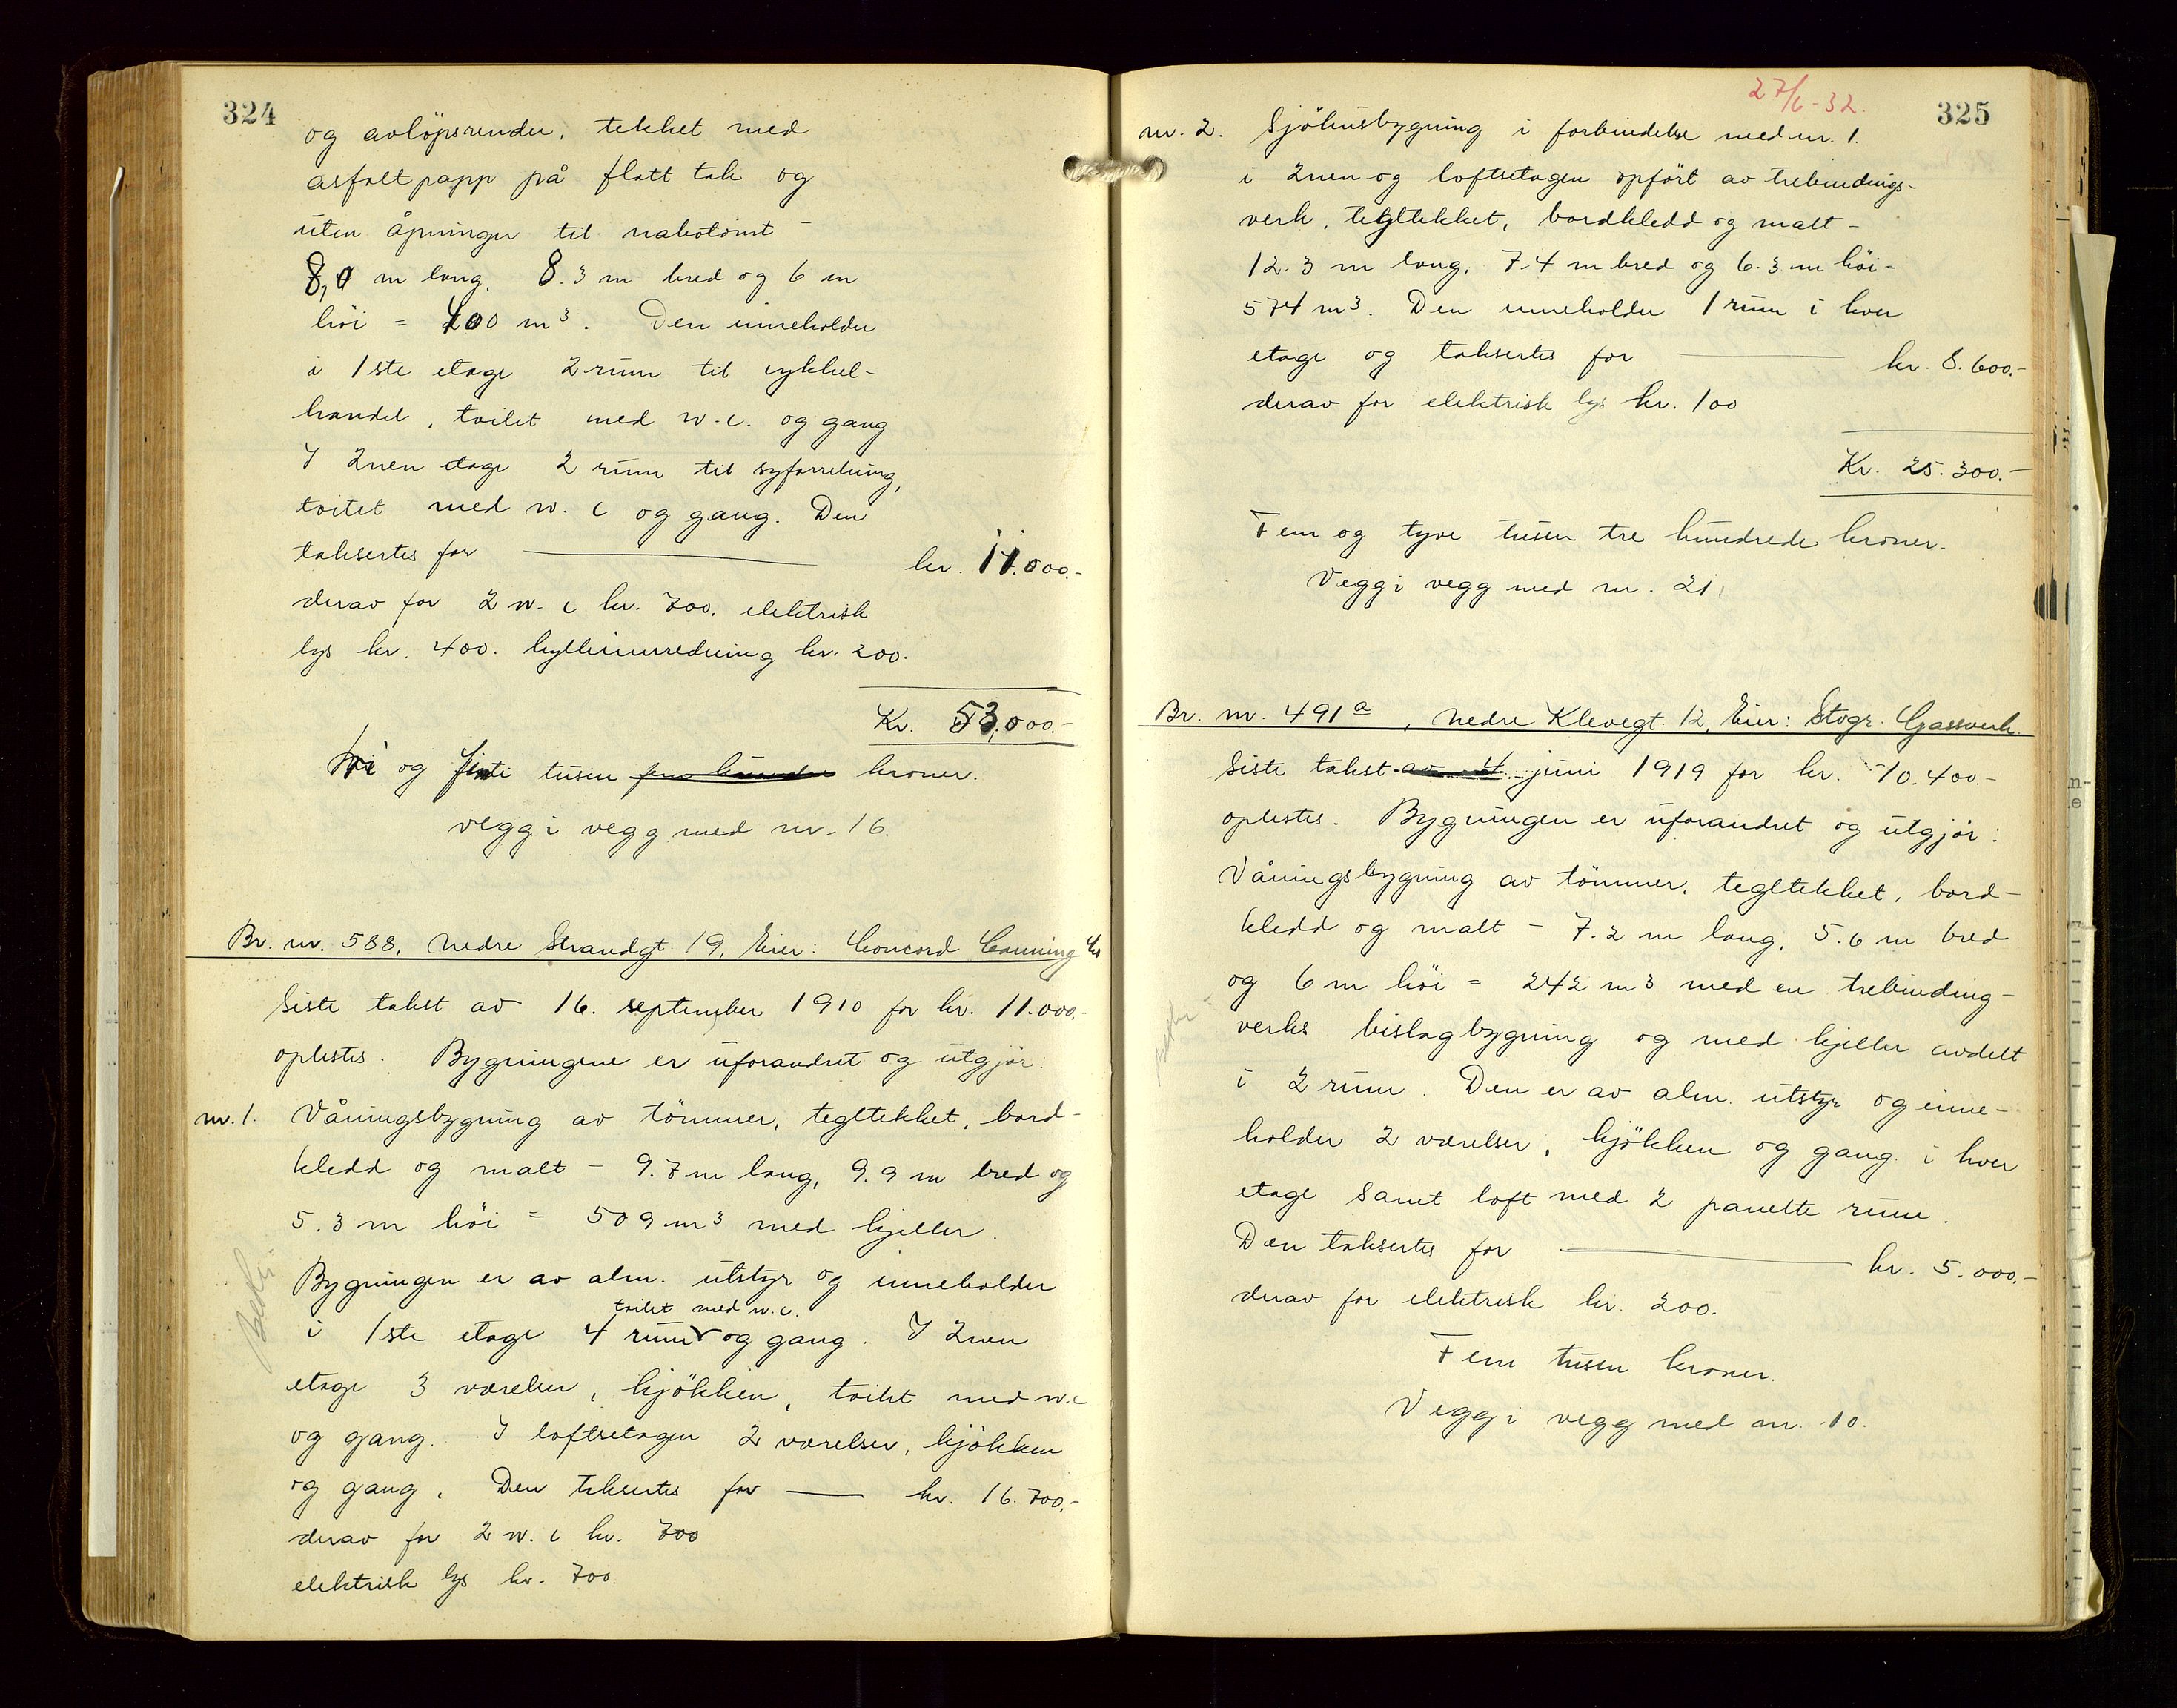 324
og avlöpsrender, tekket med
asfaltpapp på flatt tak og
uten åpninger til nabotomt -
8,0 m lang, 8.3 m bred og 6 m
höi = 400 m³. Den inneholder
i 1ste etage 2 rum til cykkel-
handel, toilet med w.c. og gang
I 2nen etage 2 rum til syforretning,
toilet med w.c og gang. Den
taksertes for kr. 11.000.-
derav for 2 w.c kr. 700. elektrisk
lys kr. 400. hylleinnredning kr. 200.
Kr. 53,000.-
tri og femti tusen fem hundre kroner.
vegg i vegg med nr. 16.
Br. nr. 588, Nedre Strandgt. 19, Eier: Concord Canning Co
Siste takst av 16. september 1910 for kr. 11.000.-
oplestes. Bygningene er uforandret og utgjör.
nr. 1. Våningsbygning av tömmer, tegltekket, bord-
kledd og malt - 9.7 m lang, 9.9 m bred og
5.3 m höi = 509 m³ med kjeller.
Bygningen er av alm. utstyr og inneholder
toilet med w.c.
i 1ste etage 4 rum og gang. I 2nen
etage 3 værelser, kjökken, toilet med w.c
og gang. I loftsetagen 2 værelser, kjökken
og gang. Den taksertes for kr. 16.700,-
derav for 2 w.c kr. 700
elektrisk lys kr. 700.
27/6-32.
325
nr. 2. Sjöhusbygning i forbindelse med nr. 1.
i 2nen og loftsetagen opfört av trebindings-
verk, tegltekket, bordkledd og malt -
12.3 m lang, 7.4 m bred og 6.3 m höi -
574 m³. Den inneholder 1 rum i hver
etage og taksertes for kr. 8.600.-
derav for elektrisk lys kr. 100
Kr. 25.300.-
Fem og tyve tusen tre hundrede kroner.
Vegg i vegg med nr. 21.
Br. nr. 491a, Nedre Klevegt. 12, Eier: Stvgr. Gassverk.
Siste takst av 4. juni 1919 for kr. 10.400.-
oplestes. Bygningen er uforandret og utgjör:
Våningsbygning av tömmer, tegltekket, bord-
kledd og malt - 7.2 m lang, 5.6 m bred
og 6 m höi = 242 m³ med en trebinding-
verks bislagbygning og med kjeller avdelt
i 2 rum. Den er av alm. utstyr og inne-
holder 2 værelser, kjökken og gang i hver
etage samt loft med 2 panelte rum.
Den taksertes for kr. 5.000.-
derav for elektrisk kr. 200.
Fem tusen kroner.
Vegg i vegg med nr. 10.